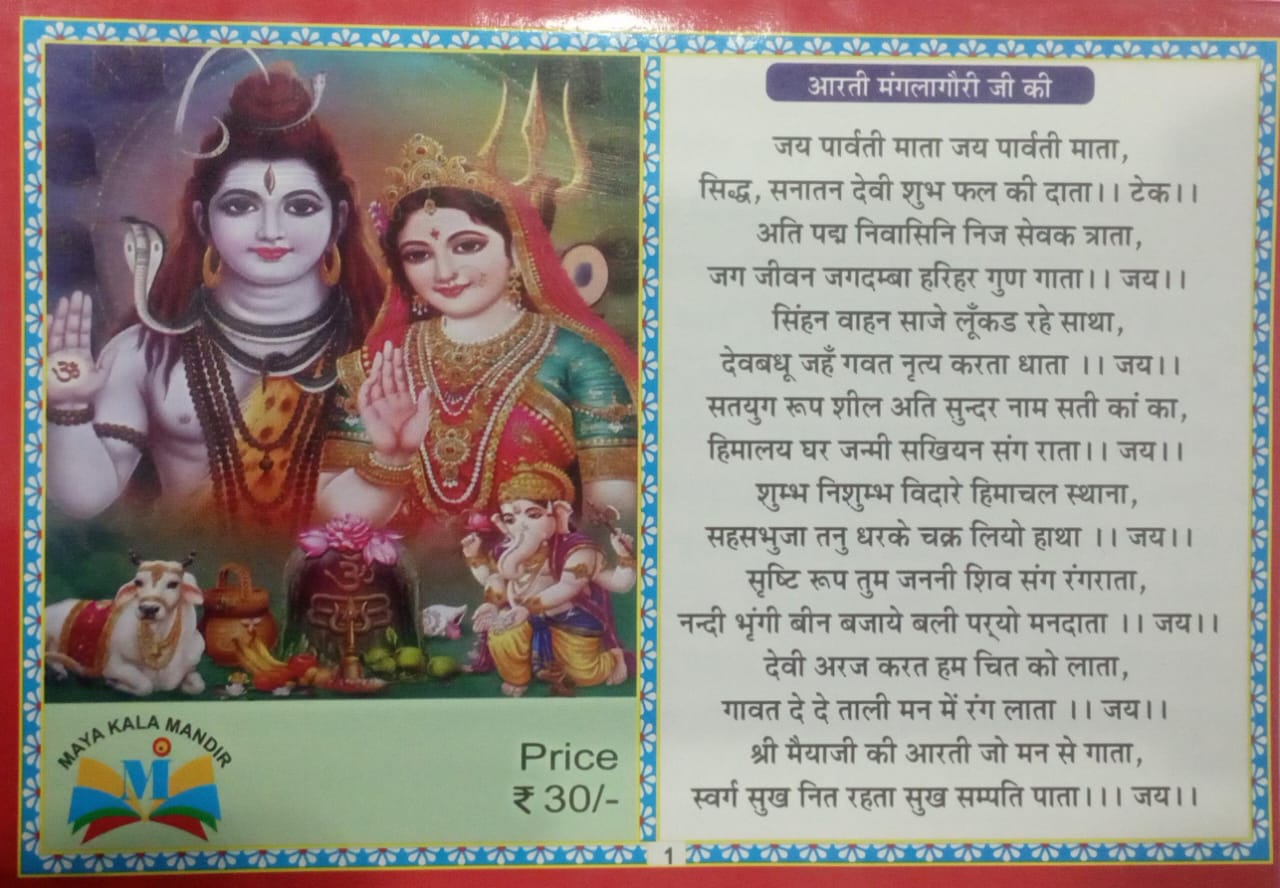 MAYA KALA MANDIR
M
Price
₹ 30/-
आरती मंगलागौरी जी की
जय पार्वती माता जय पार्वती माता,
सिद्ध, सनातन देवी शुभ फल की दाता।। टेक।।
अति पद्म निवासिनि निज सेवक त्राता,
जग जीवन जगदम्बा हरिहर गुण गाता।। जय।।
सिंहन वाहन साजे लूँकड रहे साथा,
देवबधू जहँ गवत नृत्य करता धाता ।। जय।।
सतयुग रूप शील अति सुन्दर नाम सती कां का,
हिमालय घर जन्मी सखियन संग राता।। जय।।
शुम्भ निशुम्भ विदारे हिमाचल स्थाना,
सहसभुजा तनु धरके चक्र लियो हाथा ।। जय।।
सृष्टि रूप तुम जननी शिव संग रंगराता,
नन्दी भृंगी बीन बजाये बली पर्‌यो मनदाता ।। जय।।
देवी अरज करत हम चित को लाता,
गावत दे दे ताली मन में रंग लाता ।। जय।।
श्री मैयाजी की आरती जो मन से गाता,
स्वर्ग सुख नित रहता सुख सम्पति पाता।।। जय।।
1